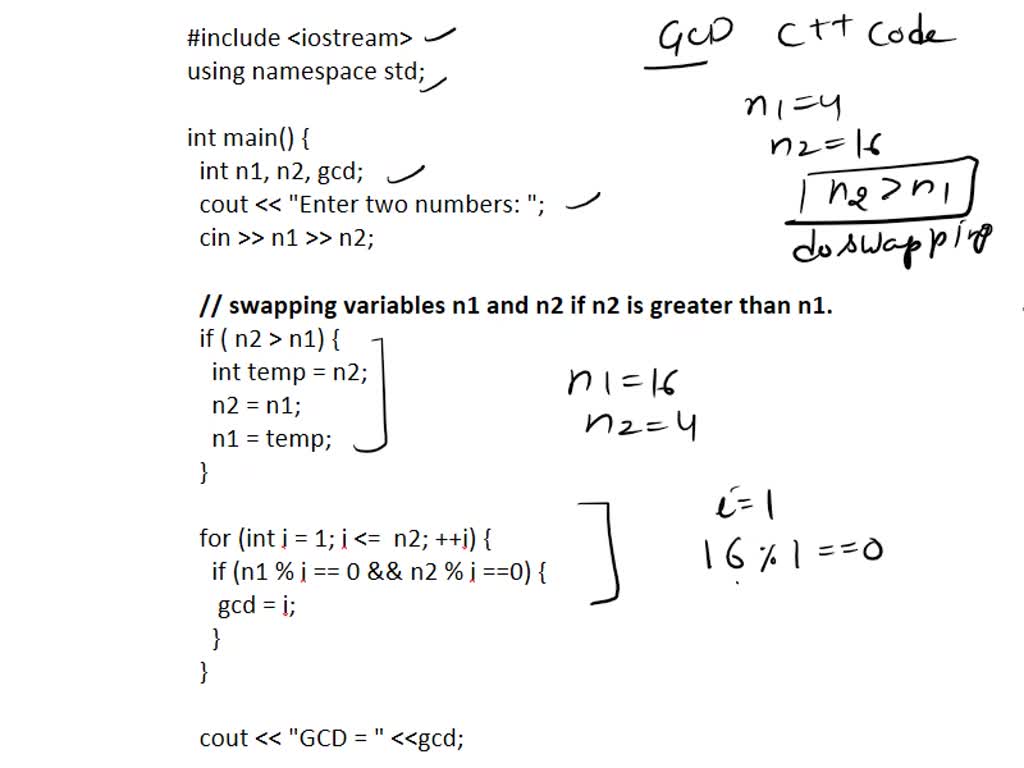 #include <iostream>
GCD C++ Code
using namespace std;
n1=4
int main() {
n2=16
int n1, n2, gcd;
n2>n1
cout << "Enter two numbers: ";
cin >> n1 >> n2;
do swapping
// swapping variables n1 and n2 if n2 is greater than n1.
if ( n2 > n1) {
int temp = n2;
n1=16
n2 = n1;
n2=4
n1 = temp;
}
i=1
for (int i = 1; i <= n2; ++i) {
16%1==0
if (n1 % i == 0 && n2 % i ==0) {
gcd = i;
}
}
cout << "GCD = " <<gcd;